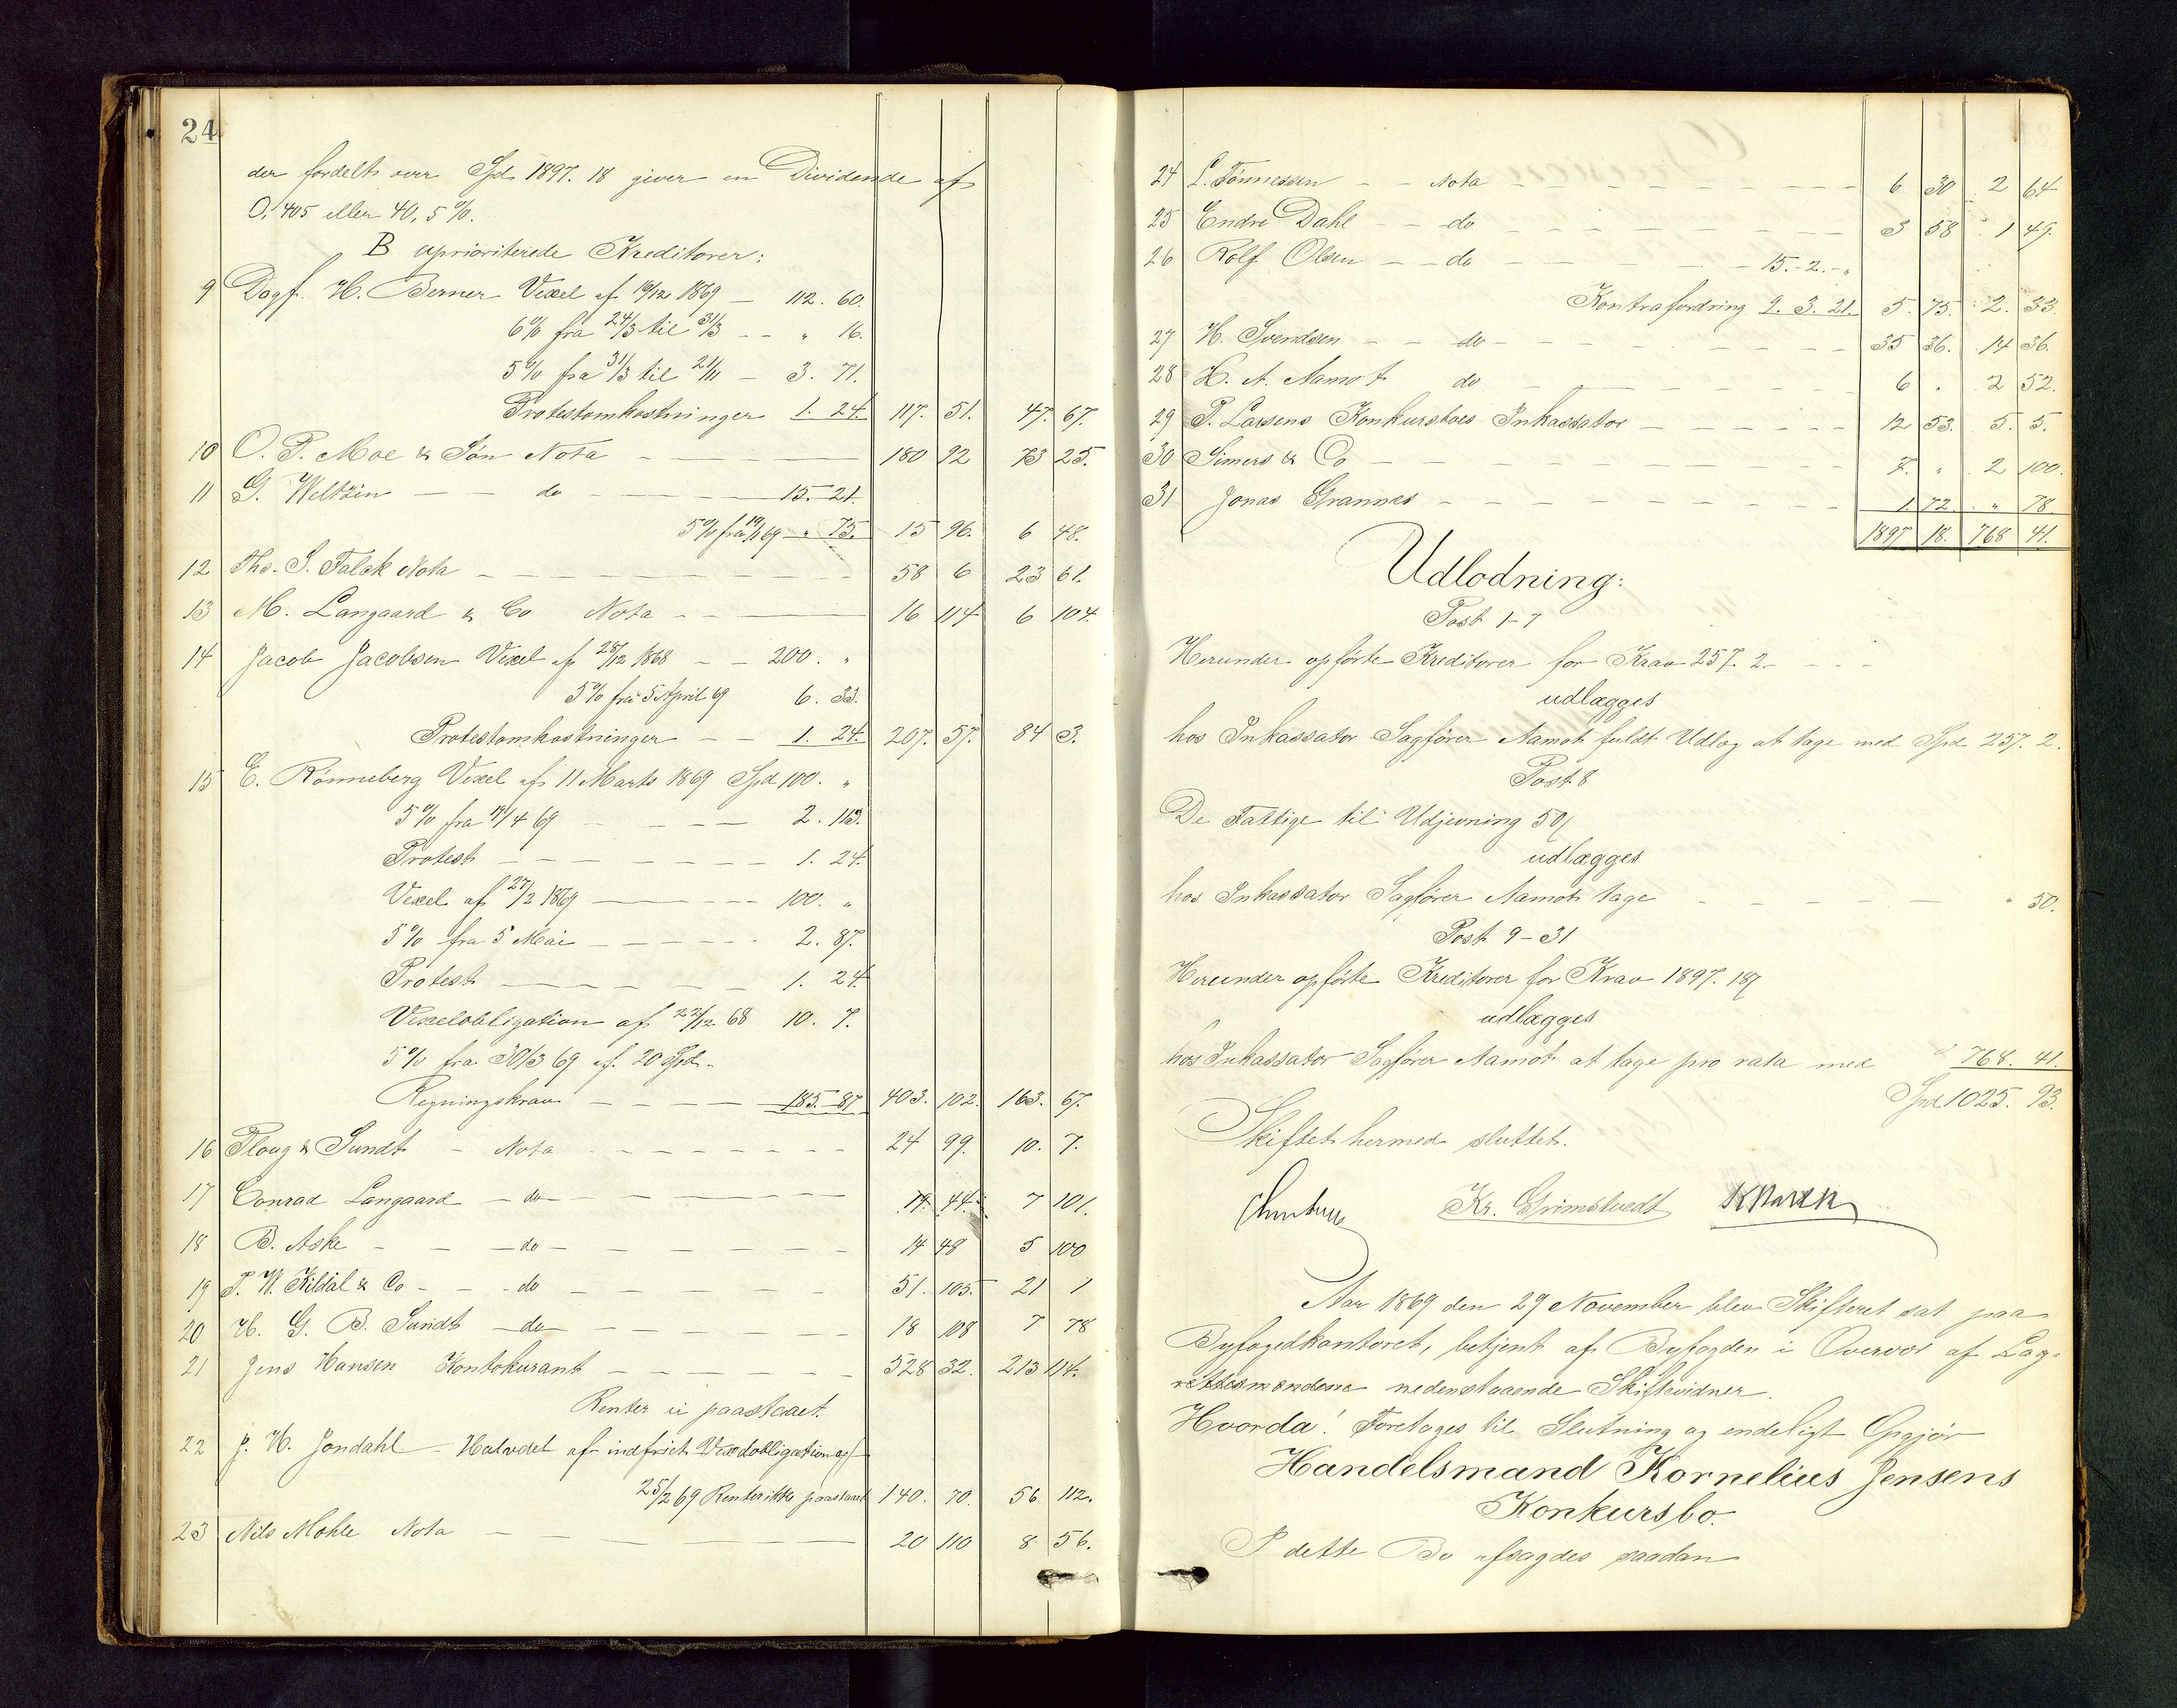 24
der fordelt over Spd. 1897. 18 giver en Dividende af
0,405 eller 40,5 %.
B uprioriterede Kreditorer:
9 Dagf. H. Berner Vexel af 19/12 1869 — 112. 60.
6% fra 24/3 til 31/3 - - " 16.
5% fra 31/3 til 21/11 - 3. 71.
Protestomkostninger 1. 24. 117. 51. 47. 67.
10 O. P. Moe & Søn Nota — 180 92 73 25.
11 G. Weltzin — do — 15. 21.
5% fra 19/1 69 - " 75. 15 96. 6 48.
12 Ths. S. Falck Nota — 58 6 23 61.
13 M. Langaard & Co Nota — 16 114 6 104.
14 Jacob Jacobsen Vexel af 28/12 1868 - - 200. "
5% fra 5 April 69 6. 33.
Protestomkostninger — 1. 24. 207. 57. 84 3.
15 E. Rønneberg Vexel af 11 Marts 1869 Spd 100. "
5% fra 14/4 69 — 2. 113.
Protest — 1. 24.
Vexel af 27/2 1869 — 100. "
5% fra 5 Mai — 2. 87.
Protest — 1. 24
Vexelobligation af 22/12 68 10. 7.
5% fra 30/3 69 af 20 Spd. -
Regningskrav — 185. 87 403. 102. 163. 67.
16 Ploug & Sundt - Nota — 24 99. 10. 7.
17 Conrad Langaard - do — 19. 44. 7 101.
18 B. Aske - do — 14 48 5 100
19 P. W. Kildal & Co - do — 51. 105. 21 1
20 H. G. B. Sundt — do — 18 108 7 78
21 Jens Hansen Kontokurant — 528 32. 213 114.
Renter ei paastaaet.
22 J. H. Jondahl - Halvdel af indfriet Vexelobligation af
25/2 69 Renter ikke paastaaet 140. 70. 56 112.
23 Nils Mohle Nota — 20 110 8 56.
24 L. Tønnessen - - Nota — 6 30 2 64
25 Endre Dahl - - do — 3 58 1 49.
26 Rolf Olsen - - do — 15. - 2. - "
Kontrafordring 9. 3. 21. 5. 75. 2. 33.
27 H. Svendsen - - do — 35 36. 14 36.
28 H. A. Aamot do — 6 " 2 52.
29 P. Larsens Konkursboes Inkassator — 12 53. 5. 5.
30 Simers & Co — 7. " 2 100.
31 Jonas Grannes — 1. 72. " 78
1897 18. 768 41.
Udlodning:
Post 1-7
Herunder opførte Kreditorer for Krav 257. 2 - - -
udlægges
hos Inkassator Sagfører Aamot fuldt Udlæg at tage med Spd 257. 2.
Post 8
De Fattige til Udjevning 50/
udlægges
hos Inkassator Sagfører Aamot tage — " 50.
Post 9-31
Herunder opførte Kreditorer for Krav 1897. 18/
udlægges
hos Inkassator Sagfører Aamot at tage pro rata med " 768. 41.
Spd 1025. 93.
Skiftet hermed sluttet.
Kr. Grimstvedt
Aar 1869 den 29 November blev Skifteret sat paa
Byfogedkontoret, betjent af Byfogden i Overvær af Lag-
rettesmændene nedenstaaende Skiftevidner.
Hvorda! Foretoges til Slutning og endeligt Opgjør
Handelsmand Kornelius Jensens
Konkursbo.
I dette Bo afsagdes saadan